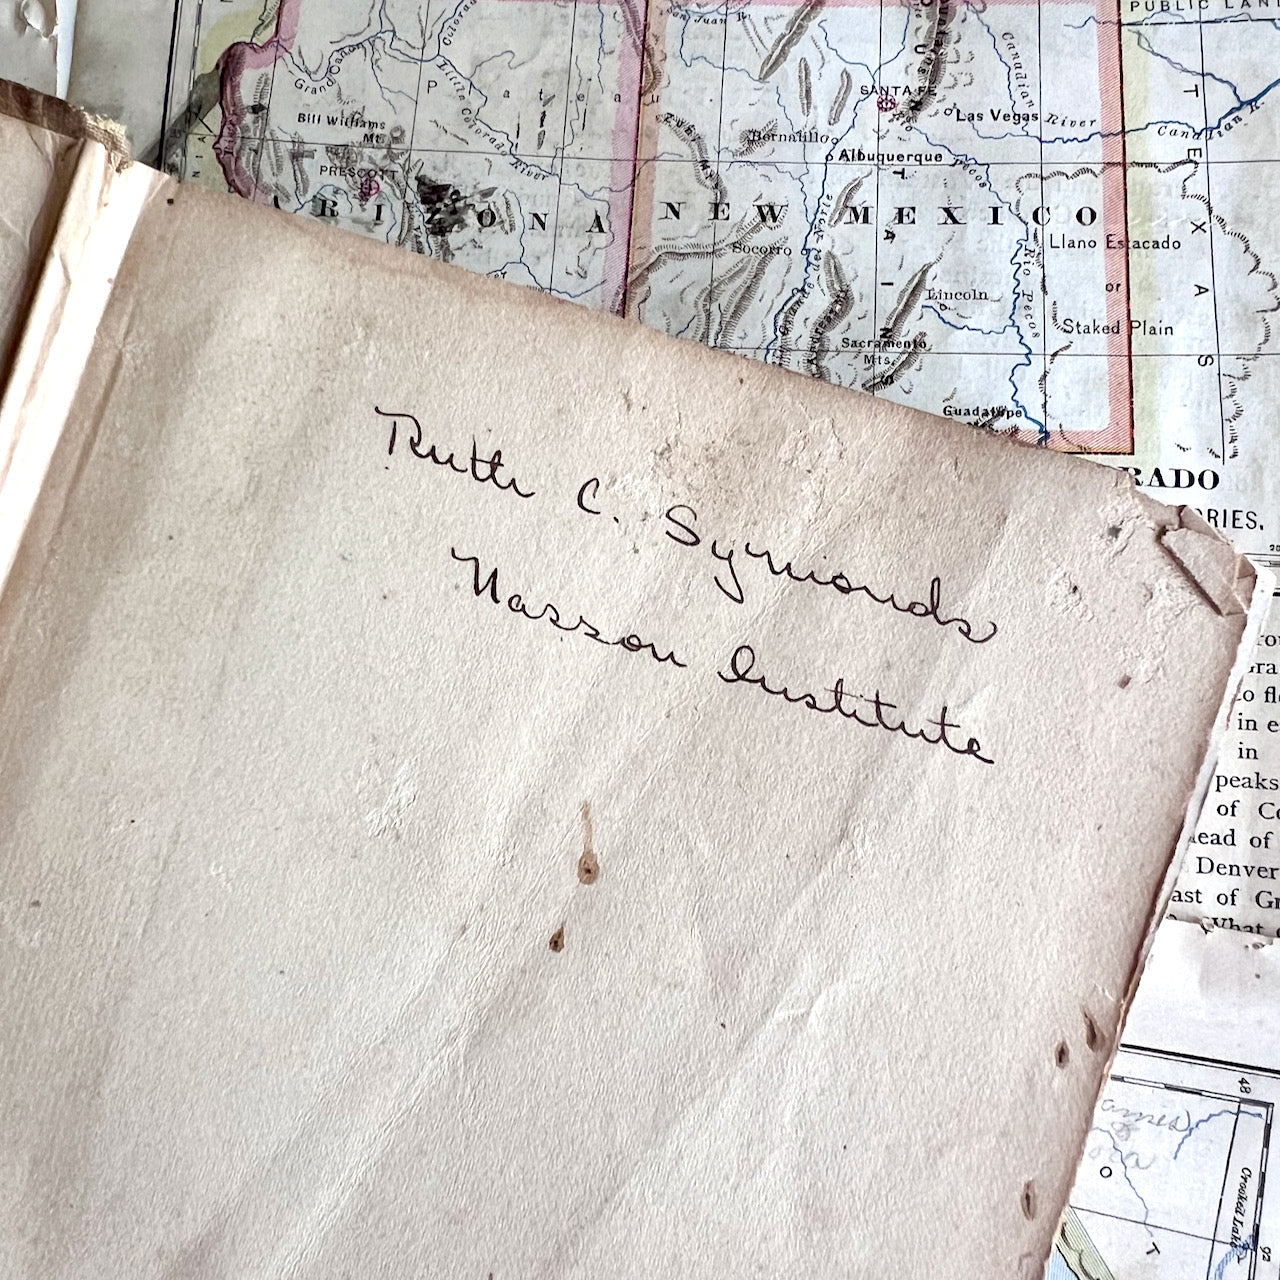 Ruth C. Symonds
Nasson Institute
PUBLIC LAN
San Juan R.
Colorado
Grand Canon
Little Colorado River
Plateau
Bill Williams
Mt.
PRESCOTT
ARIZONA
NEW MEXICO
SANTA FE
Las Vegas
Canadian River
Canadian R.
Bernalillo
Albuquerque
Zuñi Mts.
Pecos
Socorro
Rio Grande del Norte
Lincoln
Rio Pecos
Sacramento
Mts.
Guadalupe
Llano Estacado
or
Staked Plain
TEXAS
RADO
RIES.
to fl
in e
in
peaks
of Co
lead of
Denver
ast of Gr
What
48
Crooked Lake
92
O
T